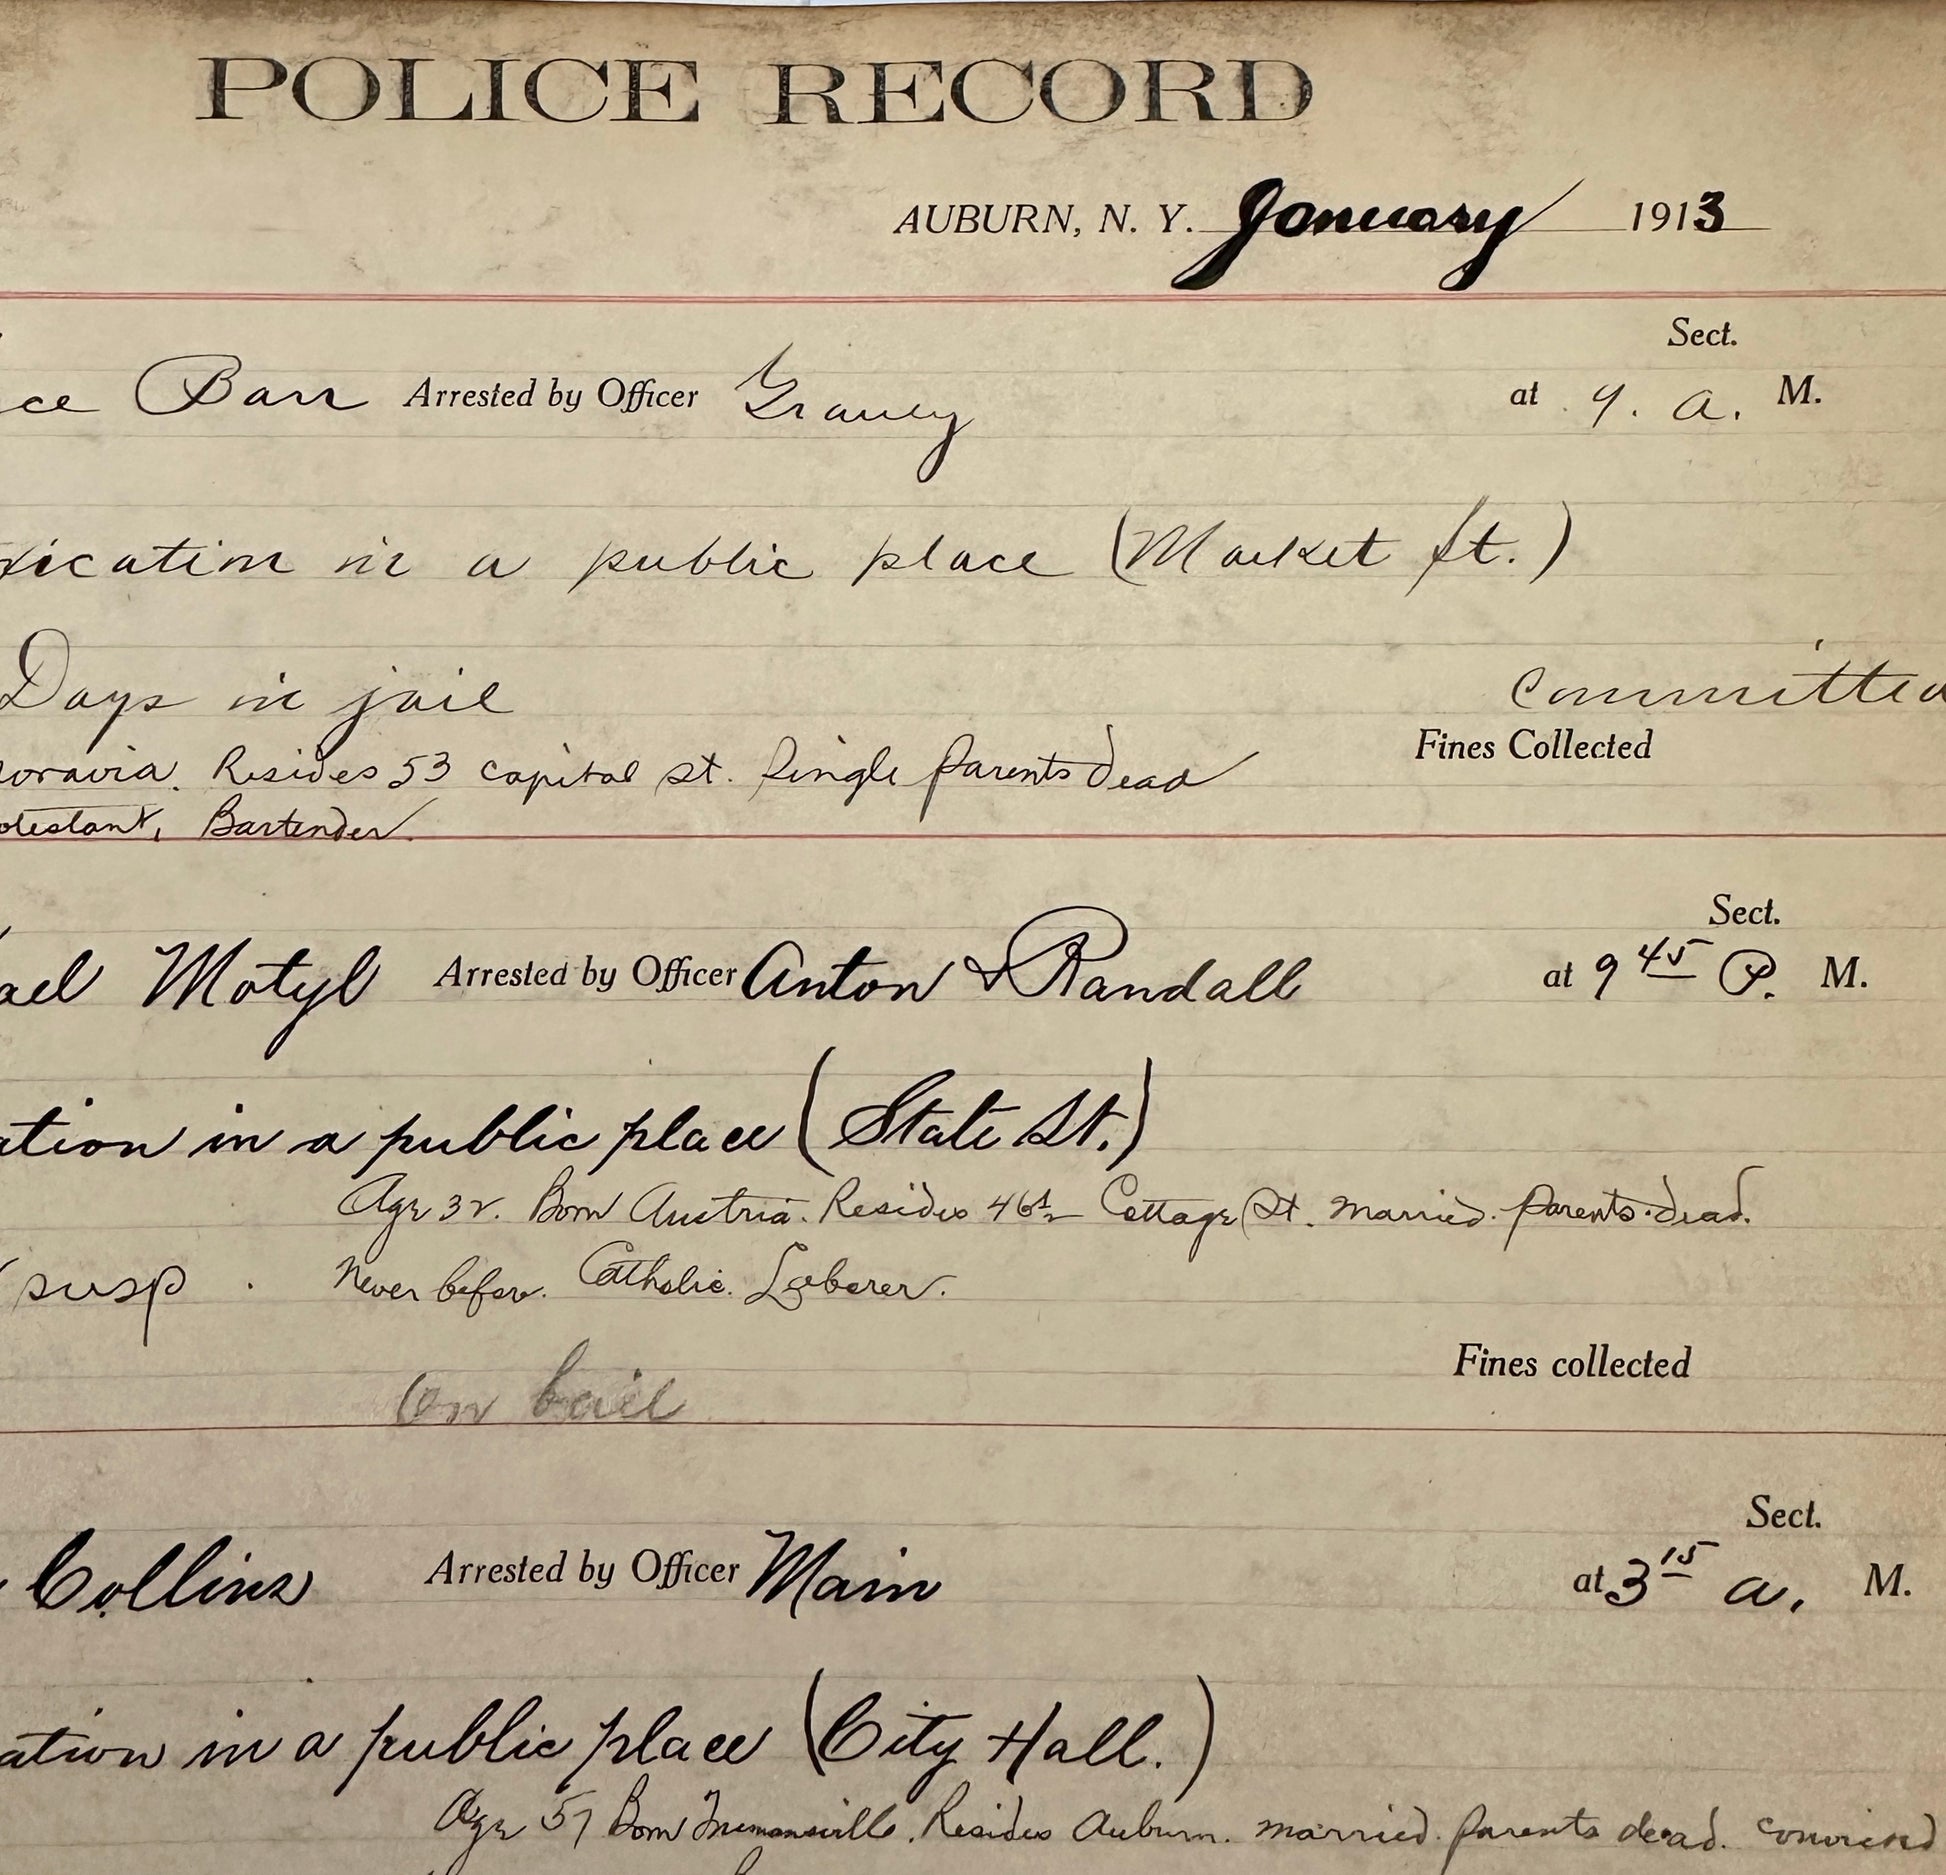 POLICE RECORD
AUBURN, N. Y. January 1913
Sect.
ce Barr Arrested by Officer at 9. a. M.
xication in a public place (Market St.)
Days in jail Committed
Fines Collected
oravia. Resides 53 capital st. Single parents dead
otestant, Bartender.
Sect.
ael Motyl Arrested by Officer Anton & Randall at 9 45 P. M.
ation in a public place (State St.)
Age 32. Born Austria. Resides 46½ Cottage St. married. parents dead.
susp. Never before. Catholic. Laborer.
Fines collected
On bail
Sect.
Collins Arrested by Officer Main at 3 15 a. M.
ation in a public place (City Hall.)
Age 57 Born Resides Auburn. married. parents dead. convicted